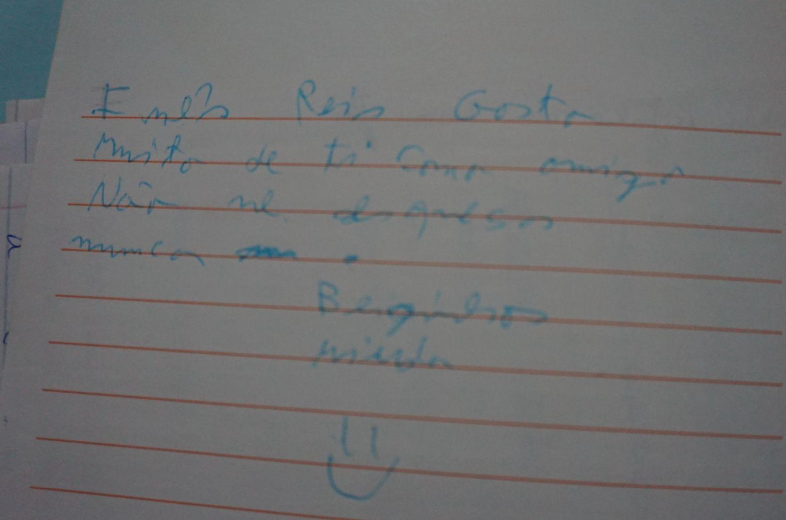 Inês Reis Gosto
Muito de ti como amiga
Não me esqueças
nunca
Beijinhos